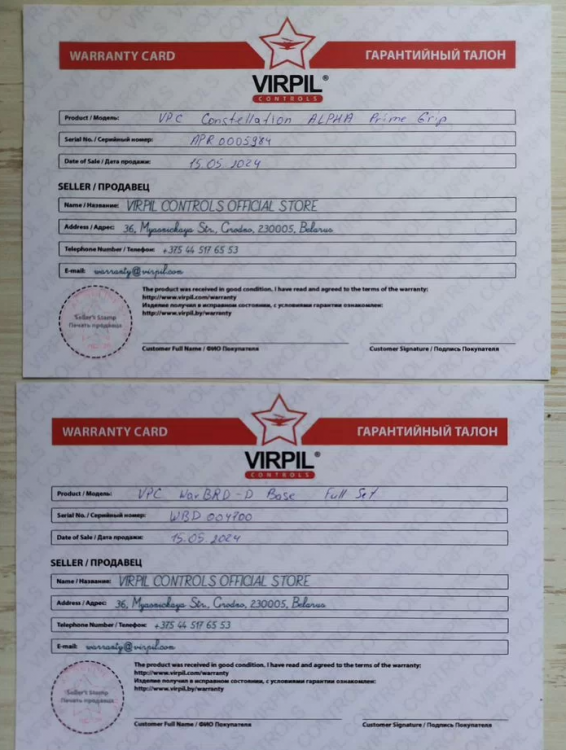 WARRANTY CARD
ГАРАНТИЙНЫЙ ТАЛОН
VIRPIL®
CONTROLS
Product / Модель: VPC Constellation ALPHA Prime Grip
Serial No. / Серийный номер: APR0005984
Date of Sale / Дата продажи: 15.05.2024
SELLER / ПРОДАВЕЦ
Name / Название: VIRPIL CONTROLS OFFICIAL STORE
Address / Адрес: 36, Myasnickaya Str., Grodno, 230005, Belarus
Telephone Number / Телефон: +375 44 517 65 53
E-mail: warranty@virpil.com
Seller's Stamp
Печать продавца
The product was received in good condition. I have read and agreed to the terms of the warranty:
http://www.virpil.com/warranty
Изделие получил в исправном состоянии, с условиями гарантии ознакомлен:
http://www.virpil.by/warranty
Customer Full Name / ФИО Покупателя
Customer Signature / Подпись Покупателя
WARRANTY CARD
ГАРАНТИЙНЫЙ ТАЛОН
VIRPIL®
CONTROLS
Product / Модель: VPC WarBRD-D Base Full Set
Serial No. / Серийный номер: WBD 004700
Date of Sale / Дата продажи: 15.05.2024
SELLER / ПРОДАВЕЦ
Name / Название: VIRPIL CONTROLS OFFICIAL STORE
Address / Адрес: 36, Myasnickaya Str., Grodno, 230005, Belarus
Telephone Number / Телефон: +375 44 517 65 53
E-mail: warranty@virpil.com
Seller's Stamp
Печать продавца
The product was received in good condition. I have read and agreed to the terms of the warranty:
http://www.virpil.com/warranty
Изделие получил в исправном состоянии, с условиями гарантии ознакомлен:
http://www.virpil.by/warranty
Customer Full Name / ФИО Покупателя
Customer Signature / Подпись Покупателя